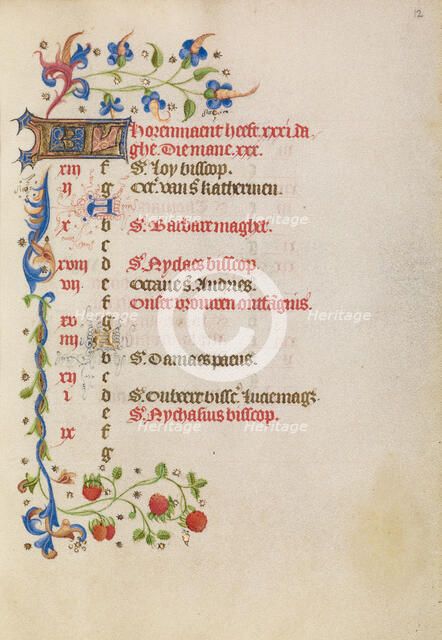 12
KL Horenmaent heeft xxxi da
ghe. Die mane xxx.
xiii f S. Loy bisscop.
ii g Oct. van S. Katherinen.
A
x b S. Barbare maghet.
c
xviii d S. Nyclaes bisscop.
vii e Octave S. Andries.
f Onser vrouwen ontfagnis.
xv g
iiii A
b S. Damaes paeus.
xii c
i d S. Oubeert bissc. Luce magt.
e S. Nychasius bisscop.
ix f
g
Heritage
©